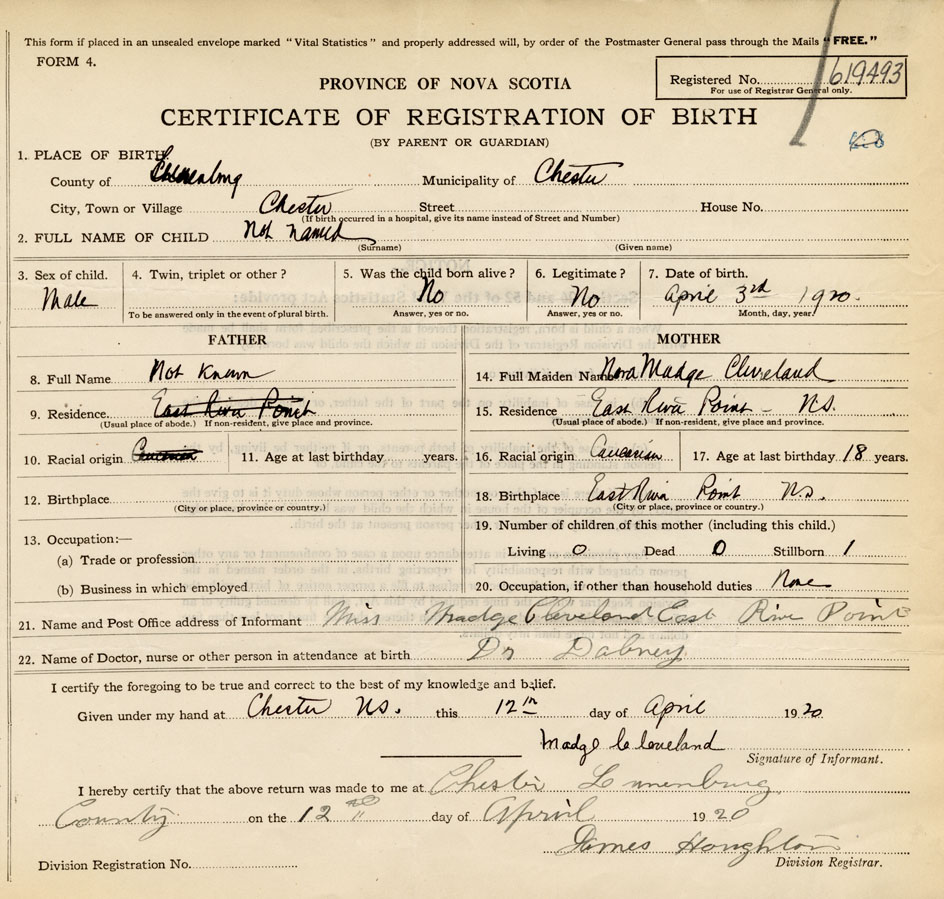 This form if placed in an unsealed envelope marked "Vital Statistics" and properly addressed will, by order of the Postmaster General pass through the Mails "FREE."
FORM 4.
PROVINCE OF NOVA SCOTIA
Registered No. 619493
For use of Registrar General only.
CERTIFICATE OF REGISTRATION OF BIRTH
(BY PARENT OR GUARDIAN)
1. PLACE OF BIRTH
County of Municipality of Chester
City, Town or Village Chester Street House No.
(If birth occurred in a hospital, give its name instead of Street and Number)
2. FULL NAME OF CHILD Not named
(Surname) (Given name)
3. Sex of child. 4. Twin, triplet or other? 5. Was the child born alive? 6. Legitimate? 7. Date of birth.
Male No No April 3rd 1920.
To be answered only in the event of plural birth. Answer, yes or no. Answer, yes or no. Month, day, year.
FATHER MOTHER
8. Full Name Not Known 14. Full Maiden Name Nora Madge Cleveland
9. Residence East River Point 15. Residence East River Point - N.S.
(Usual place of abode.) If non-resident, give place and province. (Usual place of abode.) If non-resident, give place and province.
10. Racial origin Caucasian 11. Age at last birthday years. 16. Racial origin Caucasian 17. Age at last birthday 18 years.
12. Birthplace 18. Birthplace East River Point N.S.
(City or place, province or country.) (City or place, province or country.)
13. Occupation:— 19. Number of children of this mother (including this child.)
(a) Trade or profession Living 0 Dead 0 Stillborn 1
(b) Business in which employed 20. Occupation, if other than household duties None
21. Name and Post Office address of Informant Miss Madge Cleveland East River Point
22. Name of Doctor, nurse or other person in attendance at birth Dr Dabney
I certify the foregoing to be true and correct to the best of my knowledge and belief.
Given under my hand at Chester N.S. this 12th day of April 1920
Madge Cleveland
Signature of Informant.
I hereby certify that the above return was made to me at Chester Lunenburg
County on the 12 day of April 1920
James Houghton
Division Registrar.
Division Registration No.